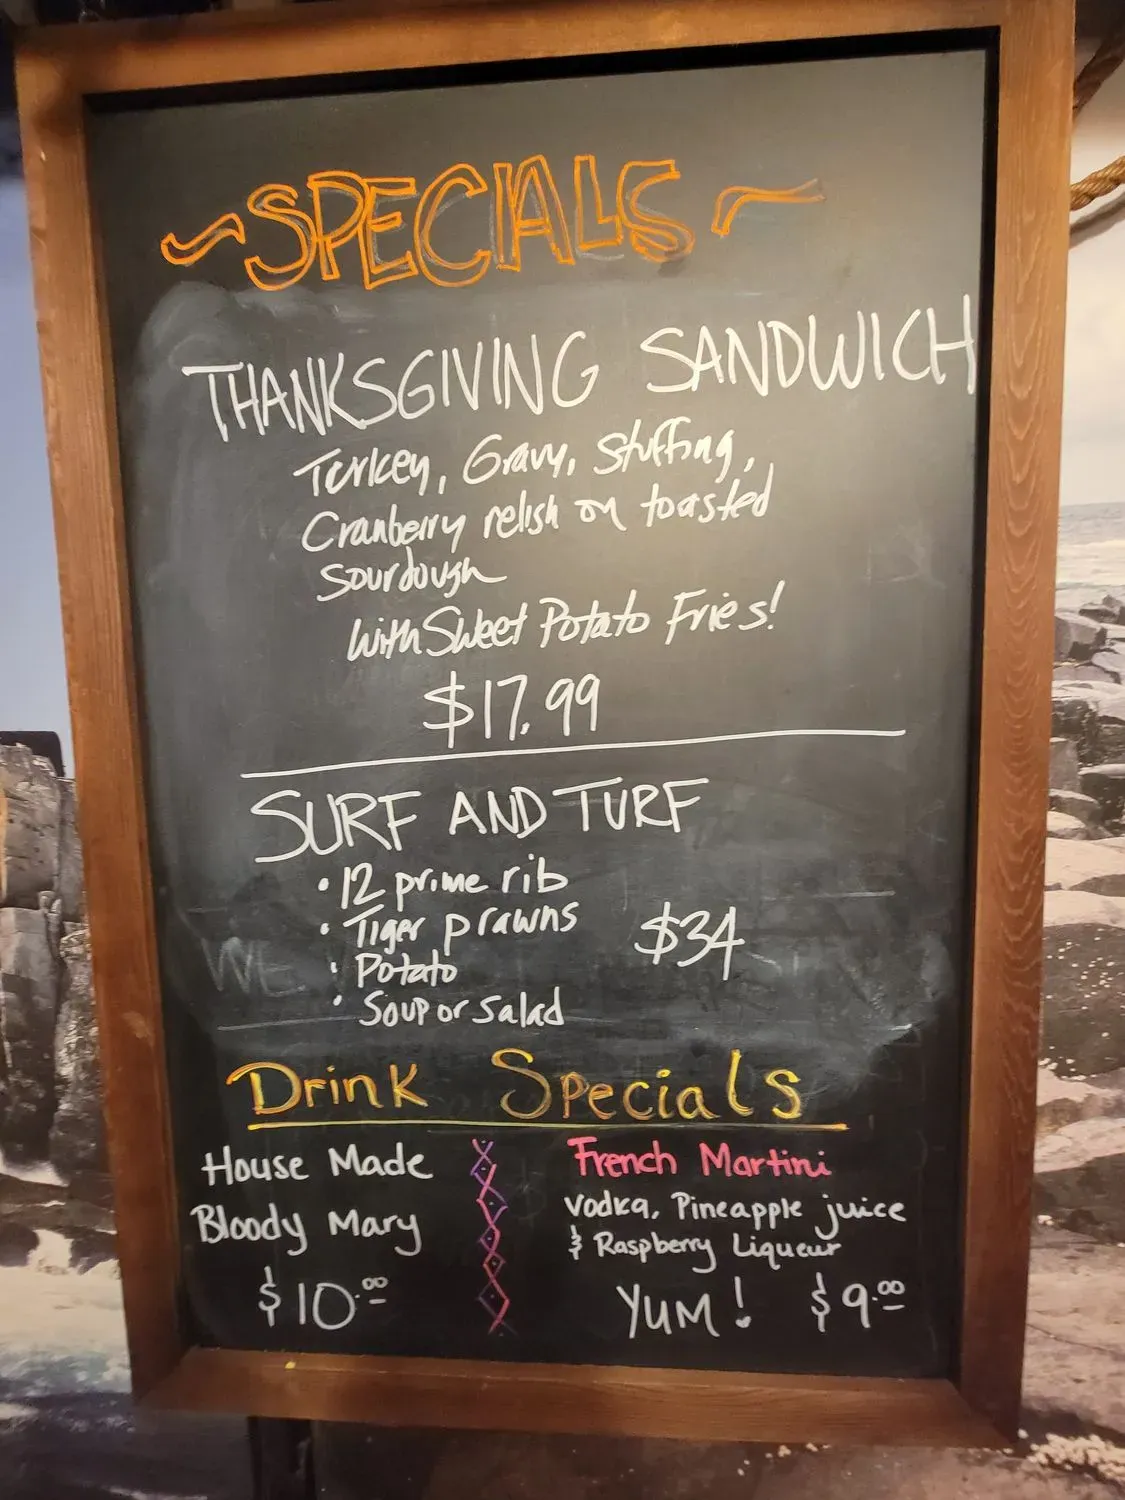 ~SPECIALS~
THANKSGIVING SANDWICH
Turkey, Gravy, Stuffing,
Cranberry relish on toasted
Sourdough
with Sweet Potato Fries!
$17.99
SURF AND TURF
• 12 prime rib
• Tiger prawns
$34
• Potato
• Soup or Salad
Drink Specials
House Made
Bloody Mary
$10.00
French Martini
Vodka, Pineapple juice
& Raspberry Liqueur
YUM! $9.00